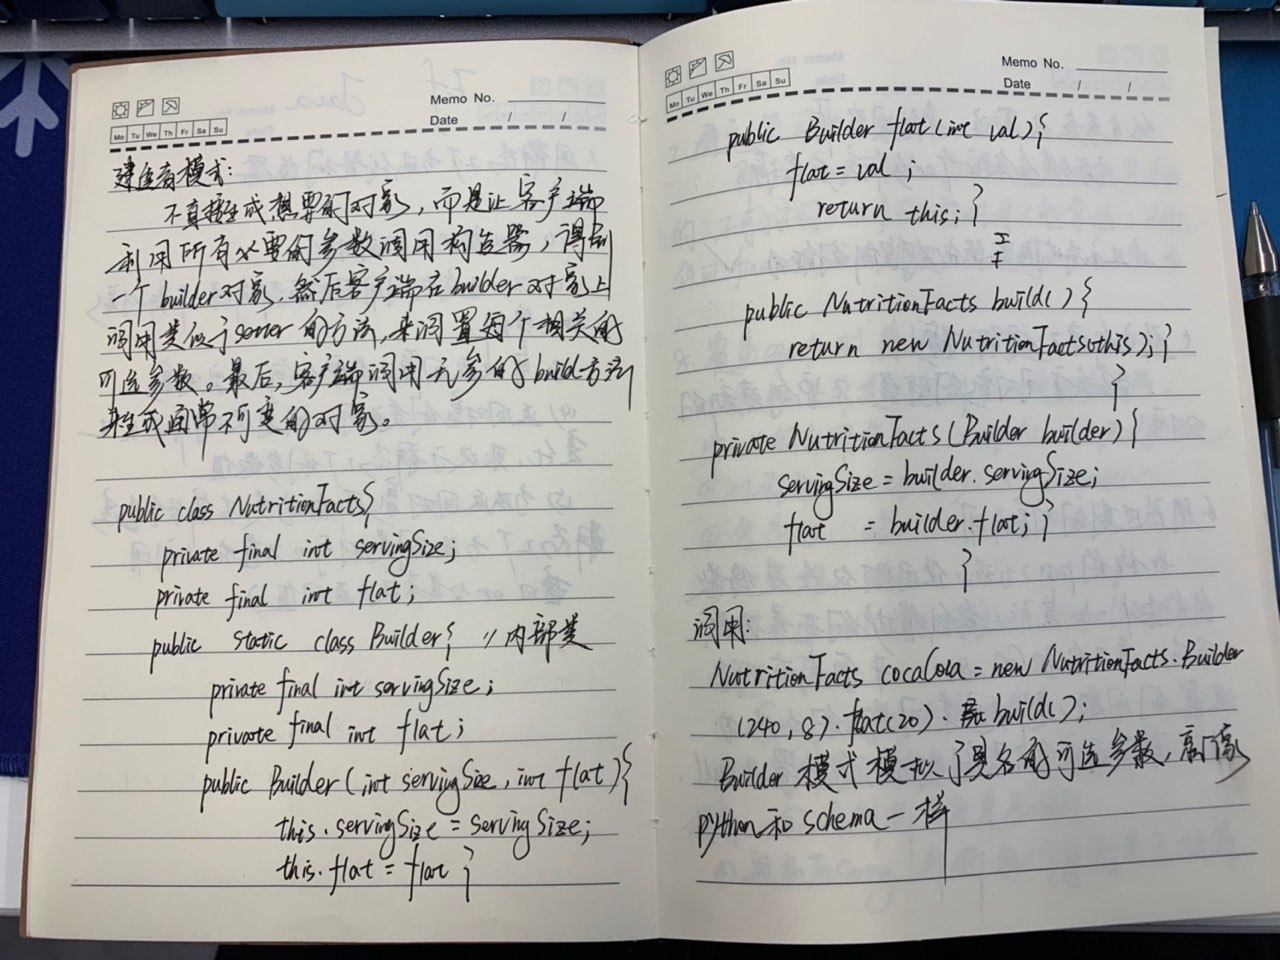 Memo No.
Date / /
Mo Tu We Th Fr Sa Su
建造者模式:
不直接生成想要的对象，而是让客户端
利用所有必要的参数调用构造器，得到
一个builder对象.然后客户端在builder对象上
调用类似于setter的方法,来设置每个相关的
可选参数。最后,客户端调用无参的build方法
来生成通常不可变的对象。
public class NutritionFacts{
private final int servingSize;
private final int flat;
public static class Builder{ //内部类
private final int servingSize;
private final int flat;
public Builder(int servingSize, int flat){
this.servingSize = servingSize;
this.flat = flat }
Memo No.
Date / /
Mo Tu We Th Fr Sa Su
public Builder flat(int val){
flat = val;
return this; }
public NutritionFacts build(){
return new NutritionFacts(this); }
}
private NutritionFacts(Builder builder){
servingSize = builder.servingSize;
flat = builder.flat; }
}
调用:
NutritionFacts cocaCola = new NutritionFacts.Builder
(240, 8).flat(20).build();
Builder模式模拟了具名的可选参数,就像
python和schema一样